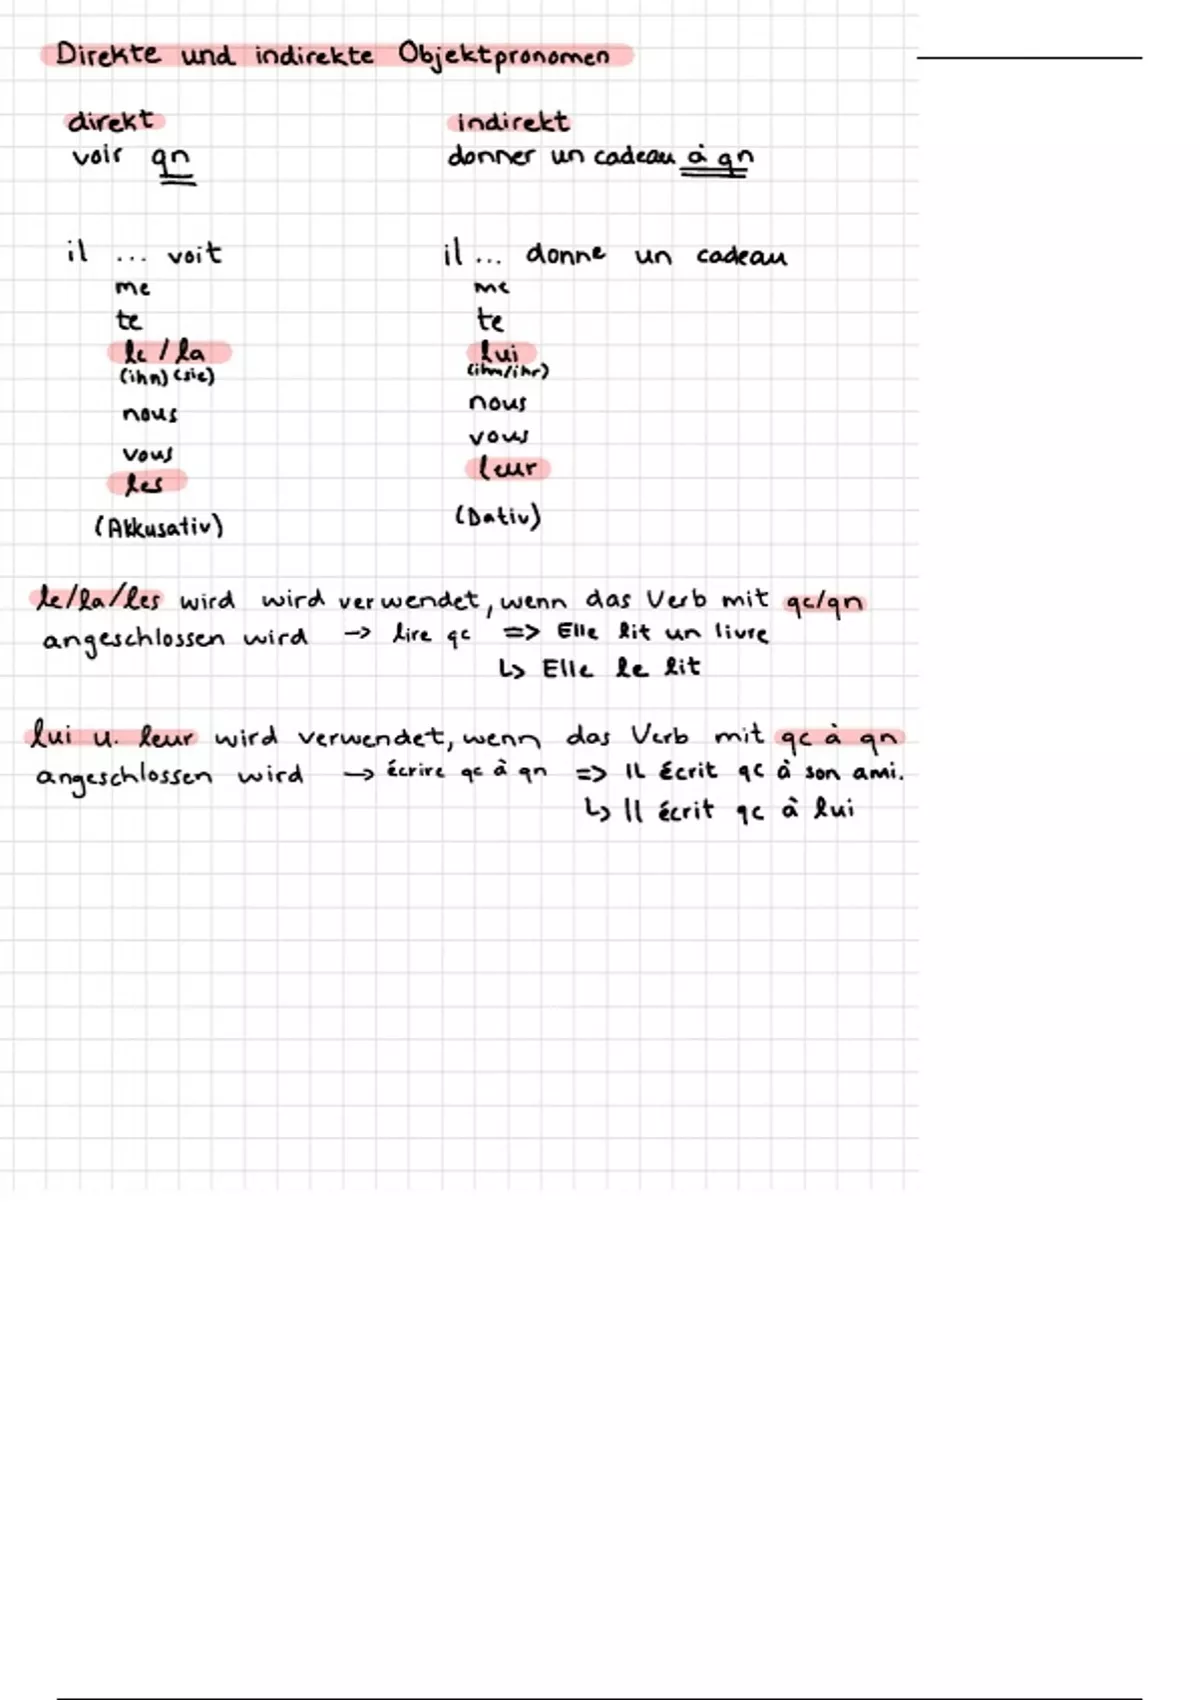 Direkte und indirekte Objektpronomen
direkt
voir qn
indirekt
donner un cadeau à qn
il ... voit
me
te
le / la
(ihn) (sie)
nous
vous
les
(Akkusativ)
il ... donne un cadeau
me
te
lui
(ihm/ihr)
nous
vous
leur
(Dativ)
le/la/les wird wird verwendet, wenn das Verb mit qc/qn
angeschlossen wird → lire qc => Elle lit un livre
↳ Elle le lit
lui u. leur wird verwendet, wenn das Verb mit qc à qn
angeschlossen wird → écrire qc à qn => Il écrit qc à son ami.
↳ Il écrit qc à lui